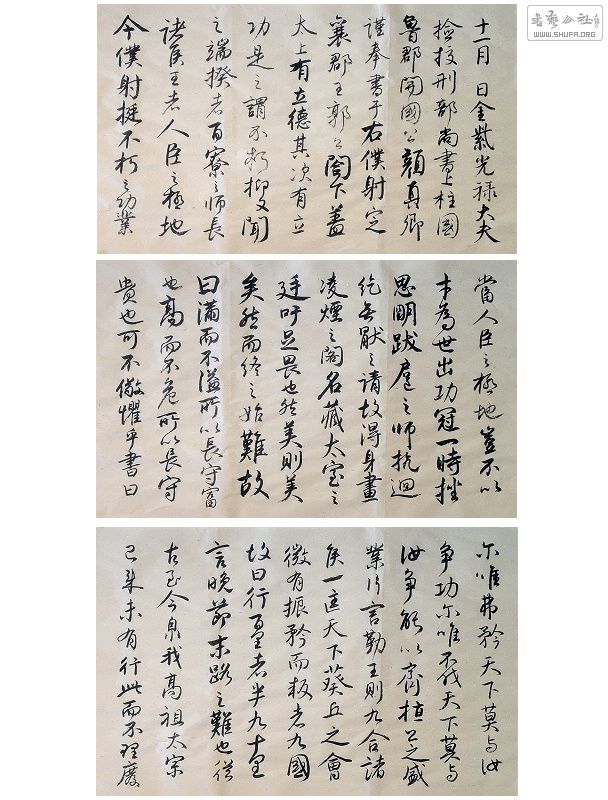 書藝公社
WWW.SHUFA.ORG
十一月 日金紫光禄大夫
捡挍刑部尚書上柱國
魯郡開國公顔真卿
謹奉書于右僕射定
襄郡王郭公閤下蓋
太上有立德其次有立
功是之謂不朽抑又聞
之端揆者百寮之師長
諸侯王者人臣之極地
今僕射挺不朽之功業
當人臣之極地豈不以
才為世出功冠一時挫
思明跋扈之師抗迴
紇無猒之請故得身畫
凌煙之閣名藏太室之
廷吁足畏也然美則美
矣然而終之始難故
曰滿而不溢所以長守富
也高而不危所以長守
貴也可不儆懼乎書曰
尔唯弗矜天下莫与汝
争功尔唯不伐天下莫与
汝争能以齊桓公之盛
業片言勤王則九合諸
侯一匡天下葵丘之會
微有振矜而叛者九國
故曰行百里者半九十里
言晚節末路之難也從
古至今泉我高祖太宗
已来未有行此而不理廢